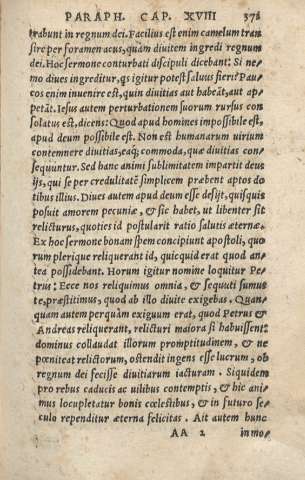 PARAPH. CAP. XVIII 378
trabunt in regnum dei. Facilius est enim camelum tran
sire per foramen acus, quàm diuitem ingredi regnum
dei. Hoc sermone conturbati discipuli dicebant: Si ne
mo diues ingreditur, qs igitur potest saluus fieri? Pau
cos enim inuenire est, quin diuitias aut habeāt, aut ap
petāt. Iesus autem perturbationem suorum rursus con
solatus est, dicens: Quod apud homines impossibile est,
apud deum possibile est. Non est humanarum uirium
contemnere diuitias, eaq; commoda, quæ diuitias con=
sequuntur. Sed hanc animi sublimitatem impartit deus
ijs, qui se per credulitatē simplicem præbent aptos do
tibus illius. Diues autem apud deum esse desijt, quisquis
posuit amorem pecuniæ, & sic habet, ut libenter sit
relicturus, quoties id postularit ratio salutis æternæ.
Ex hoc sermone bonam spem concipiunt apostoli, quo
rum plerique reliquerant id, quicquid erat quod an
tea possidebant. Horum igitur nomine loquitur Pe
trus: Ecce nos reliquimus omnia, & sequuti sumus
te, præstitimus, quod ab illo diuite exigebas. Quan,
quam autem perquàm exiguum erat, quod Petrus &
Andreas reliquerant, relicturi maiora si habuissent:
dominus collaudat illorum promptitudinem, & ne
pœniteat relictorum, ostendit ingens esse lucrum, ob
regnum dei fecisse diuitiarum iacturam. Siquidem
pro rebus caducis ac uilibus contemptis, & hic ani=
mus locupletatur bonis cœlestibus, & in futuro se/
culo rependitur æterna felicitas. Ait autem hunc
AA 2 in mo